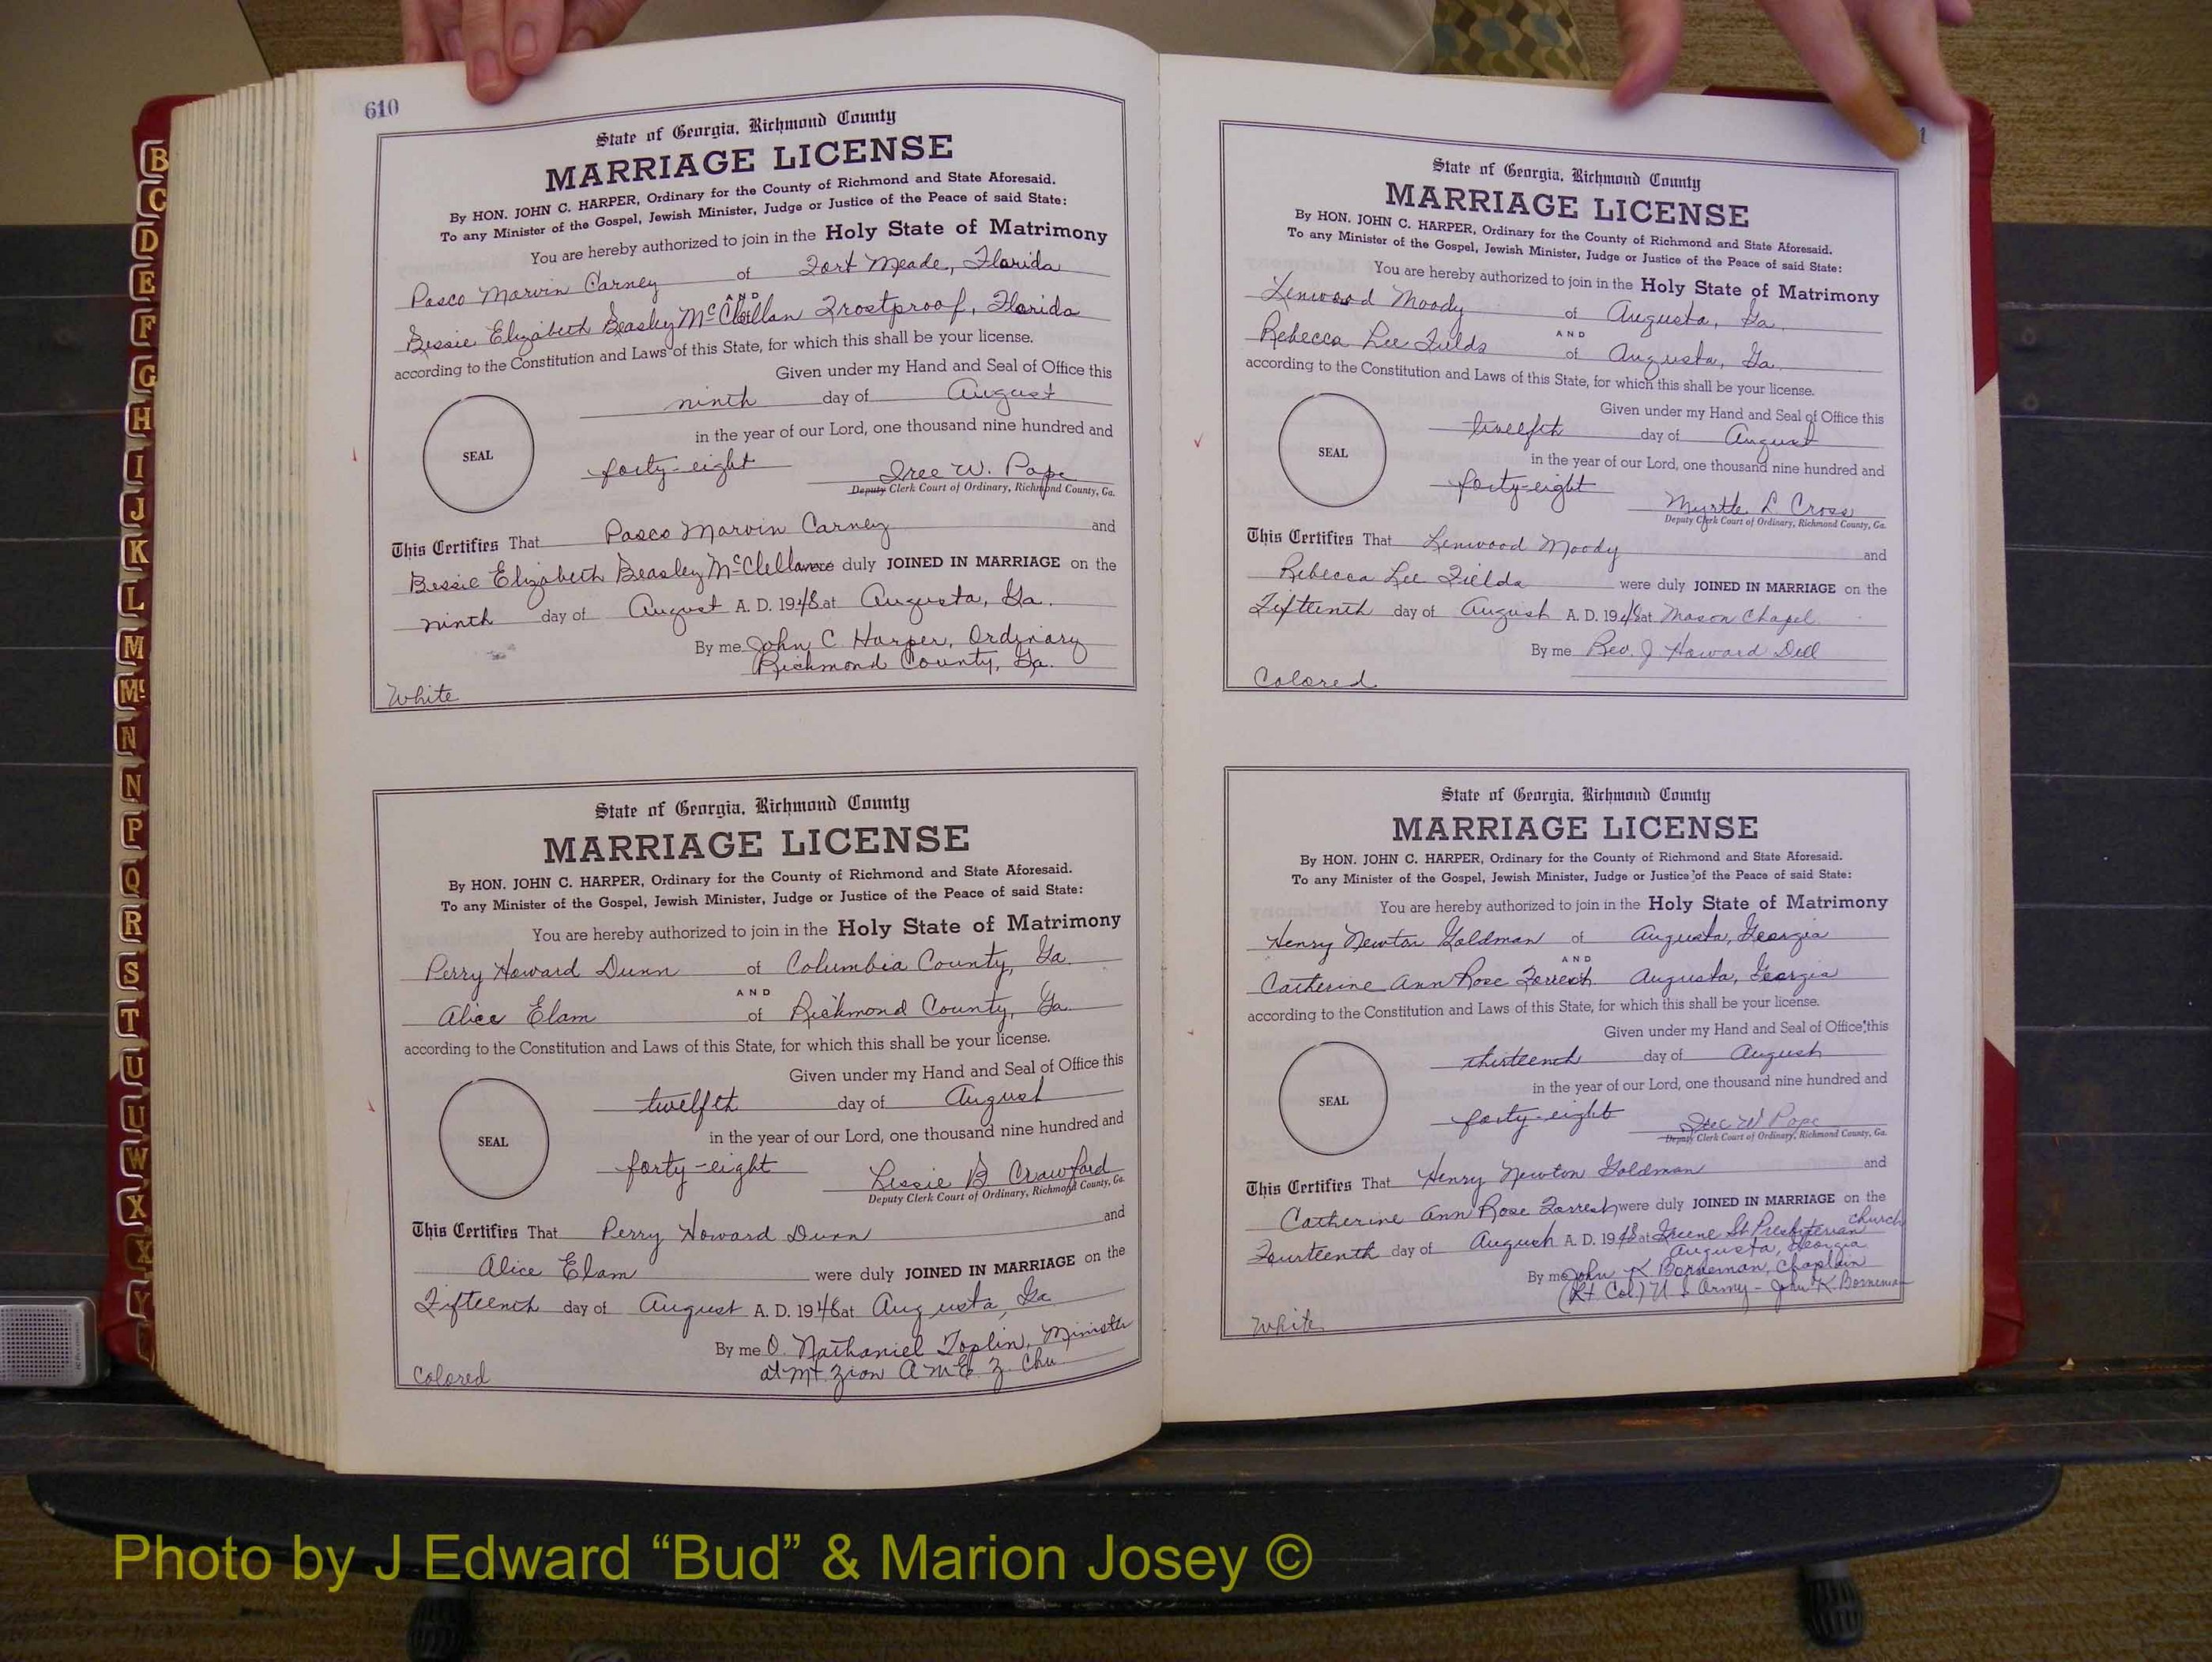 610
State of Georgia, Richmond County
MARRIAGE LICENSE
By HON. JOHN C. HARPER, Ordinary for the County of Richmond and State Aforesaid.
To any Minister of the Gospel, Jewish Minister, Judge or Justice of the Peace of said State:
You are hereby authorized to join in the Holy State of Matrimony
Pasco Marvin Carney of Fort Meade, Florida
AND
Bessie Elizabeth Beasley McClellan Frostproof, Florida
according to the Constitution and Laws of this State, for which this shall be your license.
Given under my Hand and Seal of Office this
ninth day of August
in the year of our Lord, one thousand nine hundred and
SEAL
forty-eight Iree W. Pope
Deputy Clerk Court of Ordinary, Richmond County, Ga.
This Certifies That Pasco Marvin Carney and
Bessie Elizabeth Beasley McClellan were duly JOINED IN MARRIAGE on the
ninth day of August A. D. 1948 at Augusta, Ga.
By me John C. Harper, Ordinary
Richmond County, Ga.
White
State of Georgia, Richmond County
MARRIAGE LICENSE
By HON. JOHN C. HARPER, Ordinary for the County of Richmond and State Aforesaid.
To any Minister of the Gospel, Jewish Minister, Judge or Justice of the Peace of said State:
You are hereby authorized to join in the Holy State of Matrimony
Perry Howard Dunn of Columbia County, Ga.
AND
Alice Elam of Richmond County, Ga.
according to the Constitution and Laws of this State, for which this shall be your license.
Given under my Hand and Seal of Office this
twelfth day of August
in the year of our Lord, one thousand nine hundred and
SEAL
forty-eight Lessie B Crawford
Deputy Clerk Court of Ordinary, Richmond County, Ga.
This Certifies That Perry Howard Dunn and
Alice Elam were duly JOINED IN MARRIAGE on the
Fifteenth day of August A. D. 1948 at Augusta, Ga
By me O. Nathaniel Toplin, Minister
at Mt. Zion A M E. Z. Chu
Colored
State of Georgia, Richmond County
MARRIAGE LICENSE
By HON. JOHN C. HARPER, Ordinary for the County of Richmond and State Aforesaid.
To any Minister of the Gospel, Jewish Minister, Judge or Justice of the Peace of said State:
You are hereby authorized to join in the Holy State of Matrimony
Linwood Moody of Augusta, Ga.
AND
Rebecca Lee Fields of Augusta, Ga.
according to the Constitution and Laws of this State, for which this shall be your license.
Given under my Hand and Seal of Office this
twelfth day of August
in the year of our Lord, one thousand nine hundred and
SEAL
forty-eight Myrtle L Cross
Deputy Clerk Court of Ordinary, Richmond County, Ga.
This Certifies That Linwood Moody and
Rebecca Lee Fields were duly JOINED IN MARRIAGE on the
Fifteenth day of August A. D. 1948 at Mason Chapel
By me Rev. J. Howard Dell
Colored
State of Georgia, Richmond County
MARRIAGE LICENSE
By HON. JOHN C. HARPER, Ordinary for the County of Richmond and State Aforesaid.
To any Minister of the Gospel, Jewish Minister, Judge or Justice of the Peace of said State:
You are hereby authorized to join in the Holy State of Matrimony
Henry Newton Goldman of Augusta, Georgia
AND
Catherine Ann Rose Forrest Augusta, Georgia
according to the Constitution and Laws of this State, for which this shall be your license.
Given under my Hand and Seal of Office this
thirteenth day of August
in the year of our Lord, one thousand nine hundred and
SEAL
forty-eight Iree W Pope
Deputy Clerk Court of Ordinary, Richmond County, Ga.
This Certifies That Henry Newton Goldman and
Catherine Ann Rose Forrest were duly JOINED IN MARRIAGE on the
Fourteenth day of August A. D. 1948 at Greene St Presbyterian Church
Augusta, Georgia
By me John K Borneman, Chaplain
(Lt. Col.) U S Army - John K. Borneman
White
B
C
D
E
F
G
H
I
J
K
L
M
Mc
N
N
P
Q
R
S
T
U
U
W
X
X
Y
Photo by J Edward “Bud” & Marion Josey ©